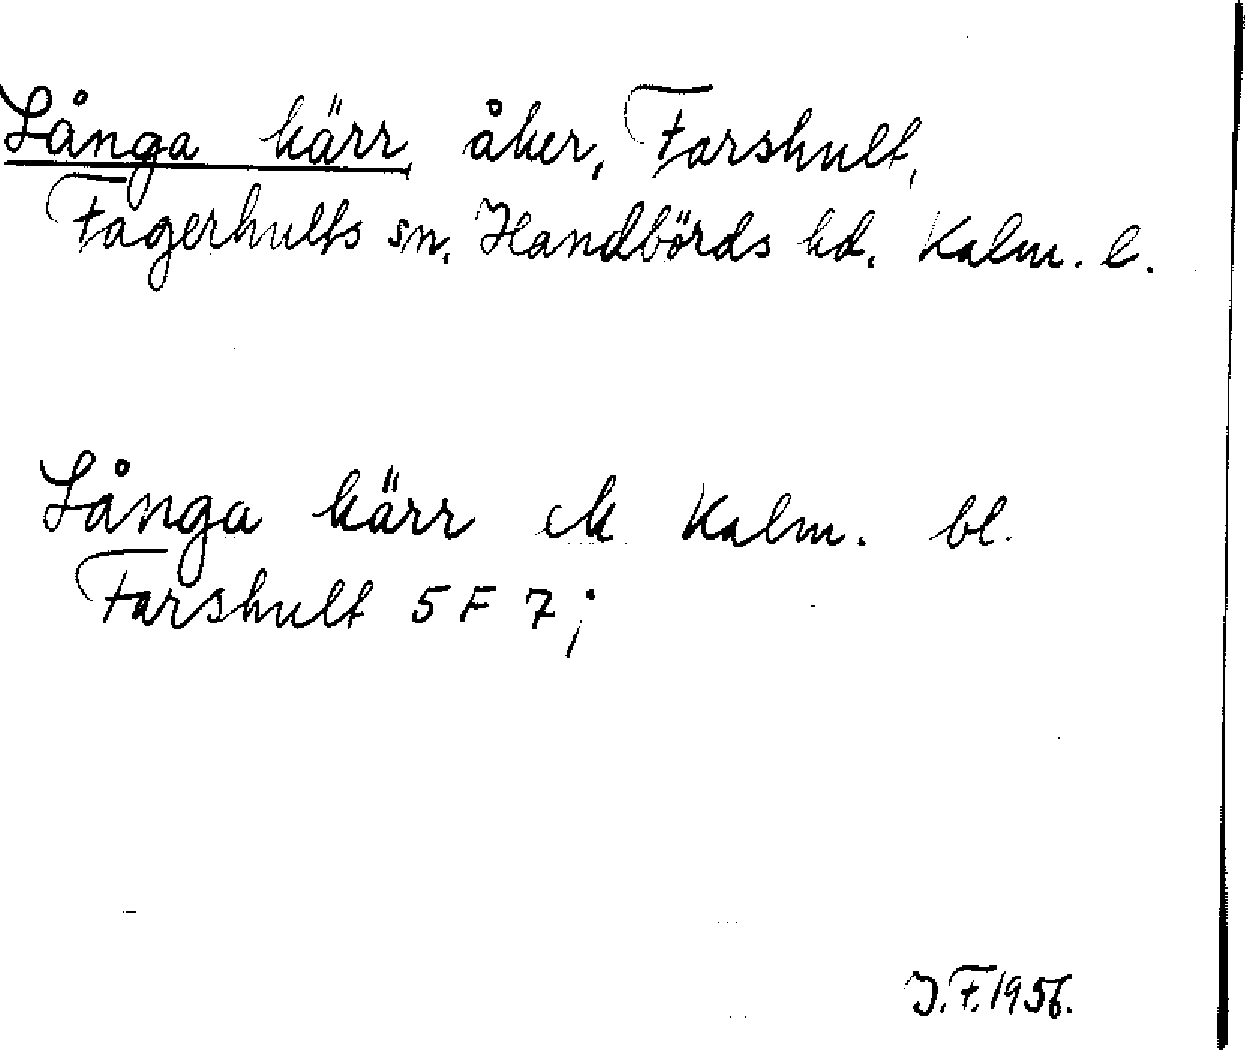 Långa kärr, åker, Farshult,
Fagerhults sn, Handbörds hd, Kalm. l.
Långa kärr ek Kalm. bl.
Farshult 5 F 7;
J. F. 1956.